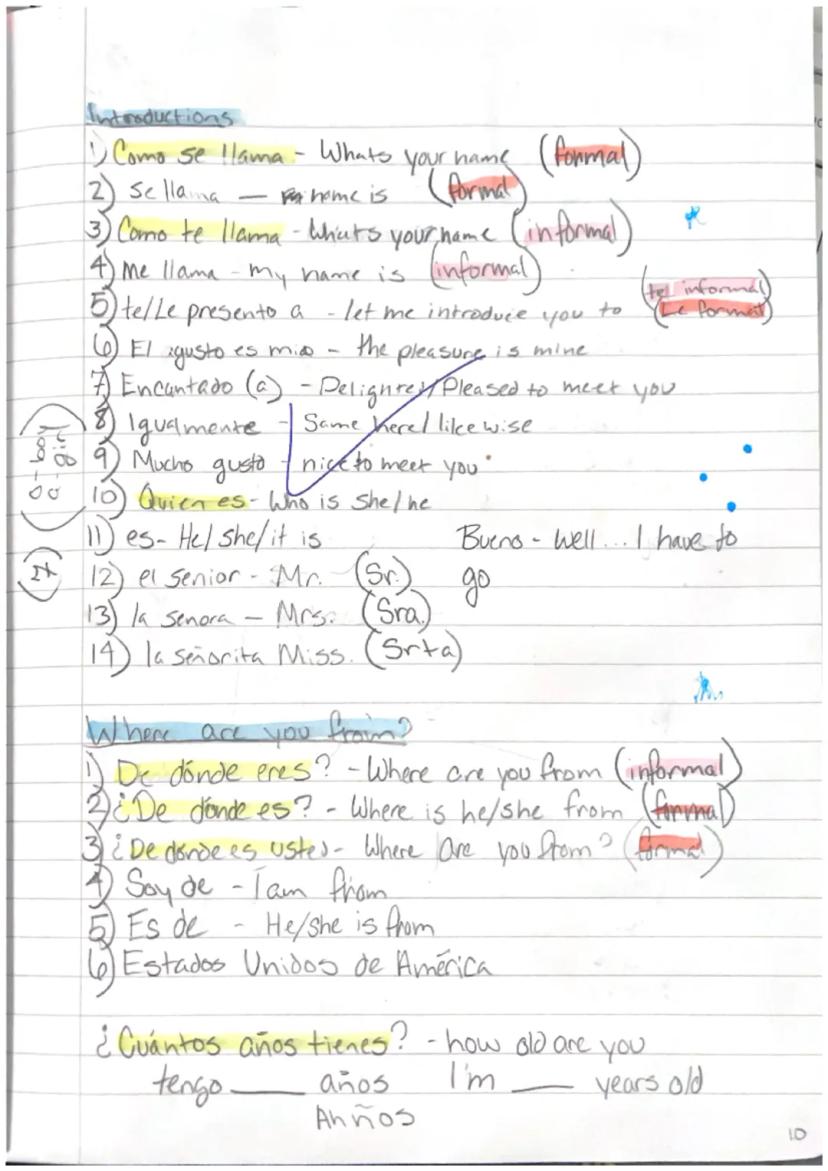 Introductions
1) Como se llama - Whats your name (formal)
2) se llama - name is (formal)
3) Como te llama - Whats your name (informal)
4) Me llama - my name is (informal)
5) te/Le presento a - let me introduce you to (te informal)
(Le formal)
6) El gusto es mio - the pleasure is mine
7) Encantado (a) - Delighted/Pleased to meet you
8) Igualmente - Same here/likewise
9) Mucho gusto - nice to meet you
10) Quien es - Who is she/he
11) es - He/she/it is Bueno - Well... I have to
go
12) el senior - Mr. (Sr.)
13) la senora - Mrs. (Sra.)
14) la señorita Miss. (Srta)
Where are you from?
1) De dónde eres? - Where are you from (informal)
2) ¿De dónde es? - Where is he/she from (formal)
3) ¿De dónde es usted - Where are you from? (formal)
4) Soy de - I am from
5) Es de - He/she is from
6) Estados Unidos de América
¿Cuántos años tienes? - how old are you
tengo ___ años I'm ___ years old
Ahños
10